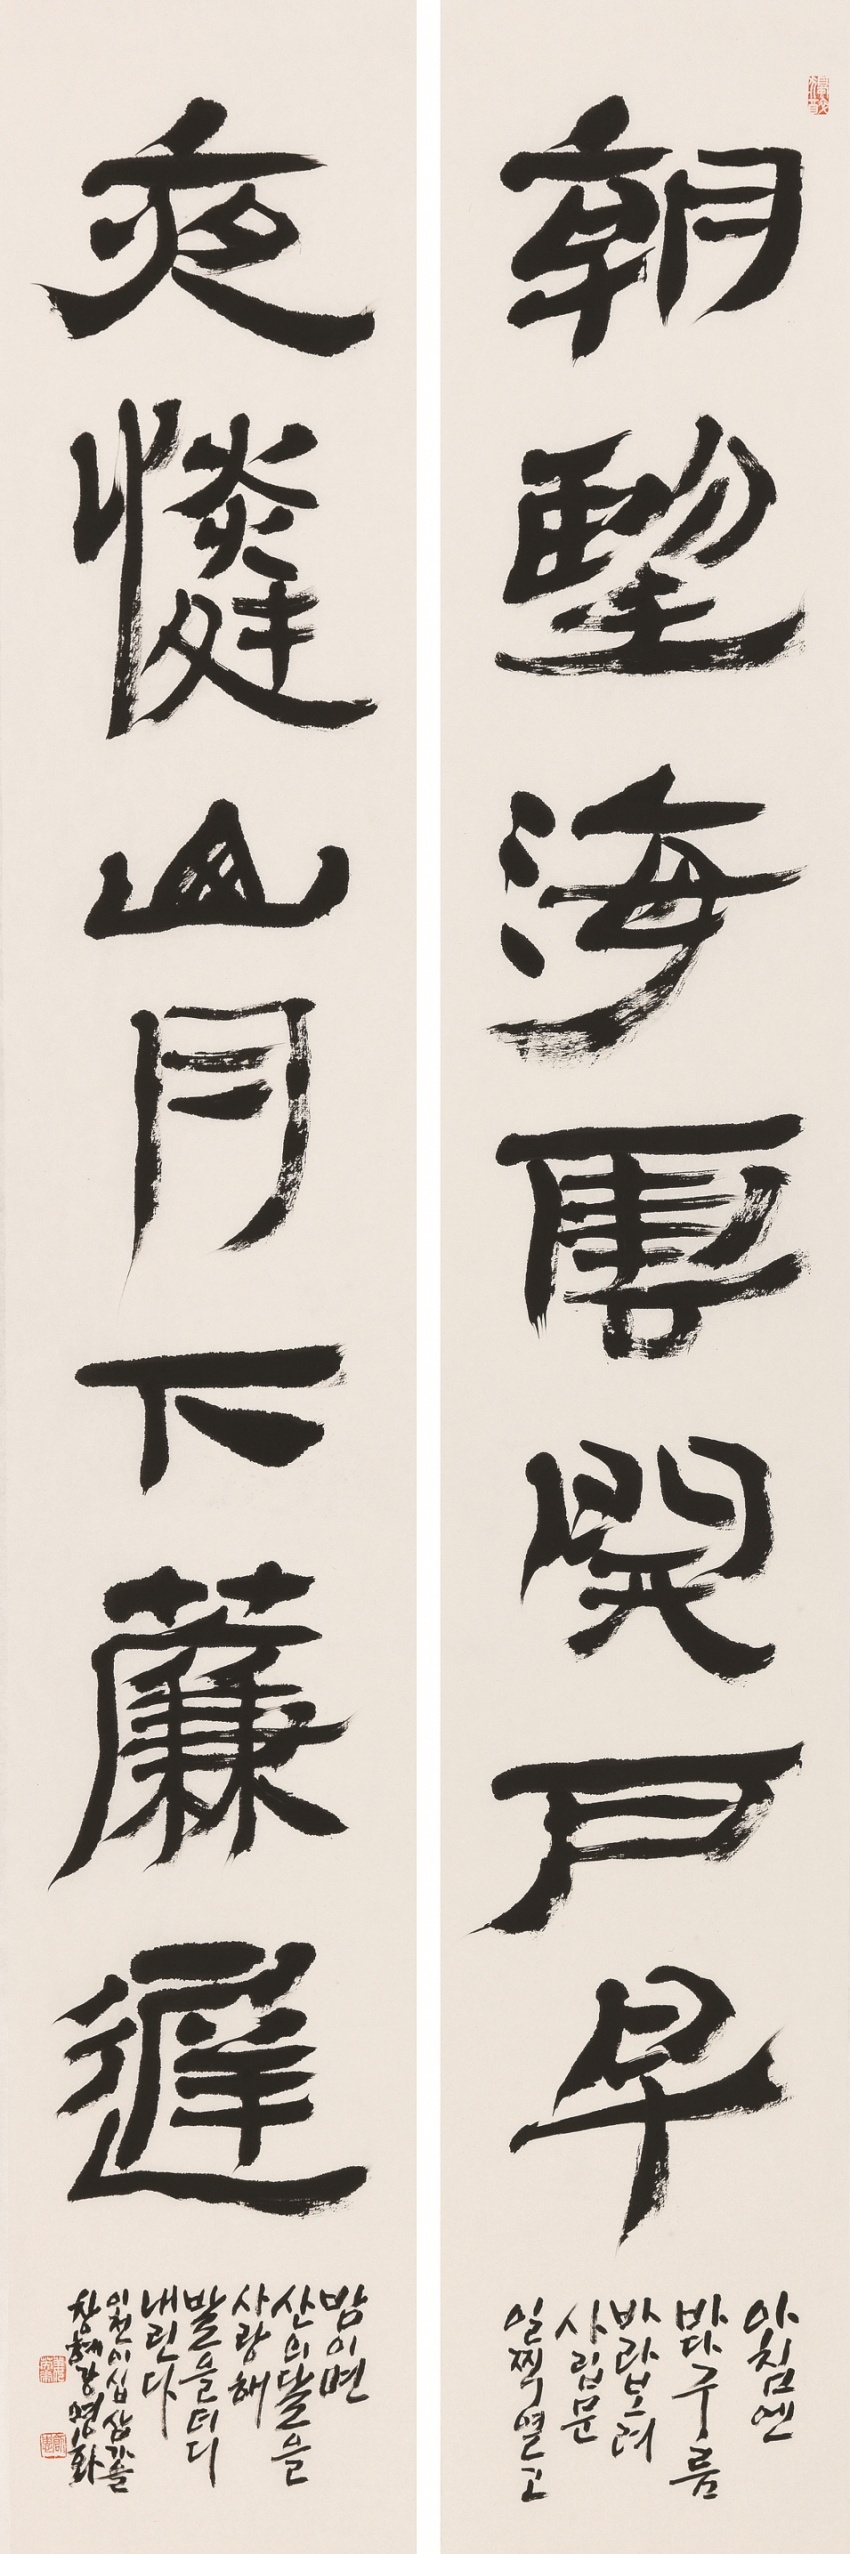 朝望海雲開戶早
아침엔
바다구름
바라보려
사립문
일찍 열고
夜憐山月下簾遲
밤이면
산의 달을
사랑해
발을 더디
내린다
이천이십삼 가을
창혜 강명화